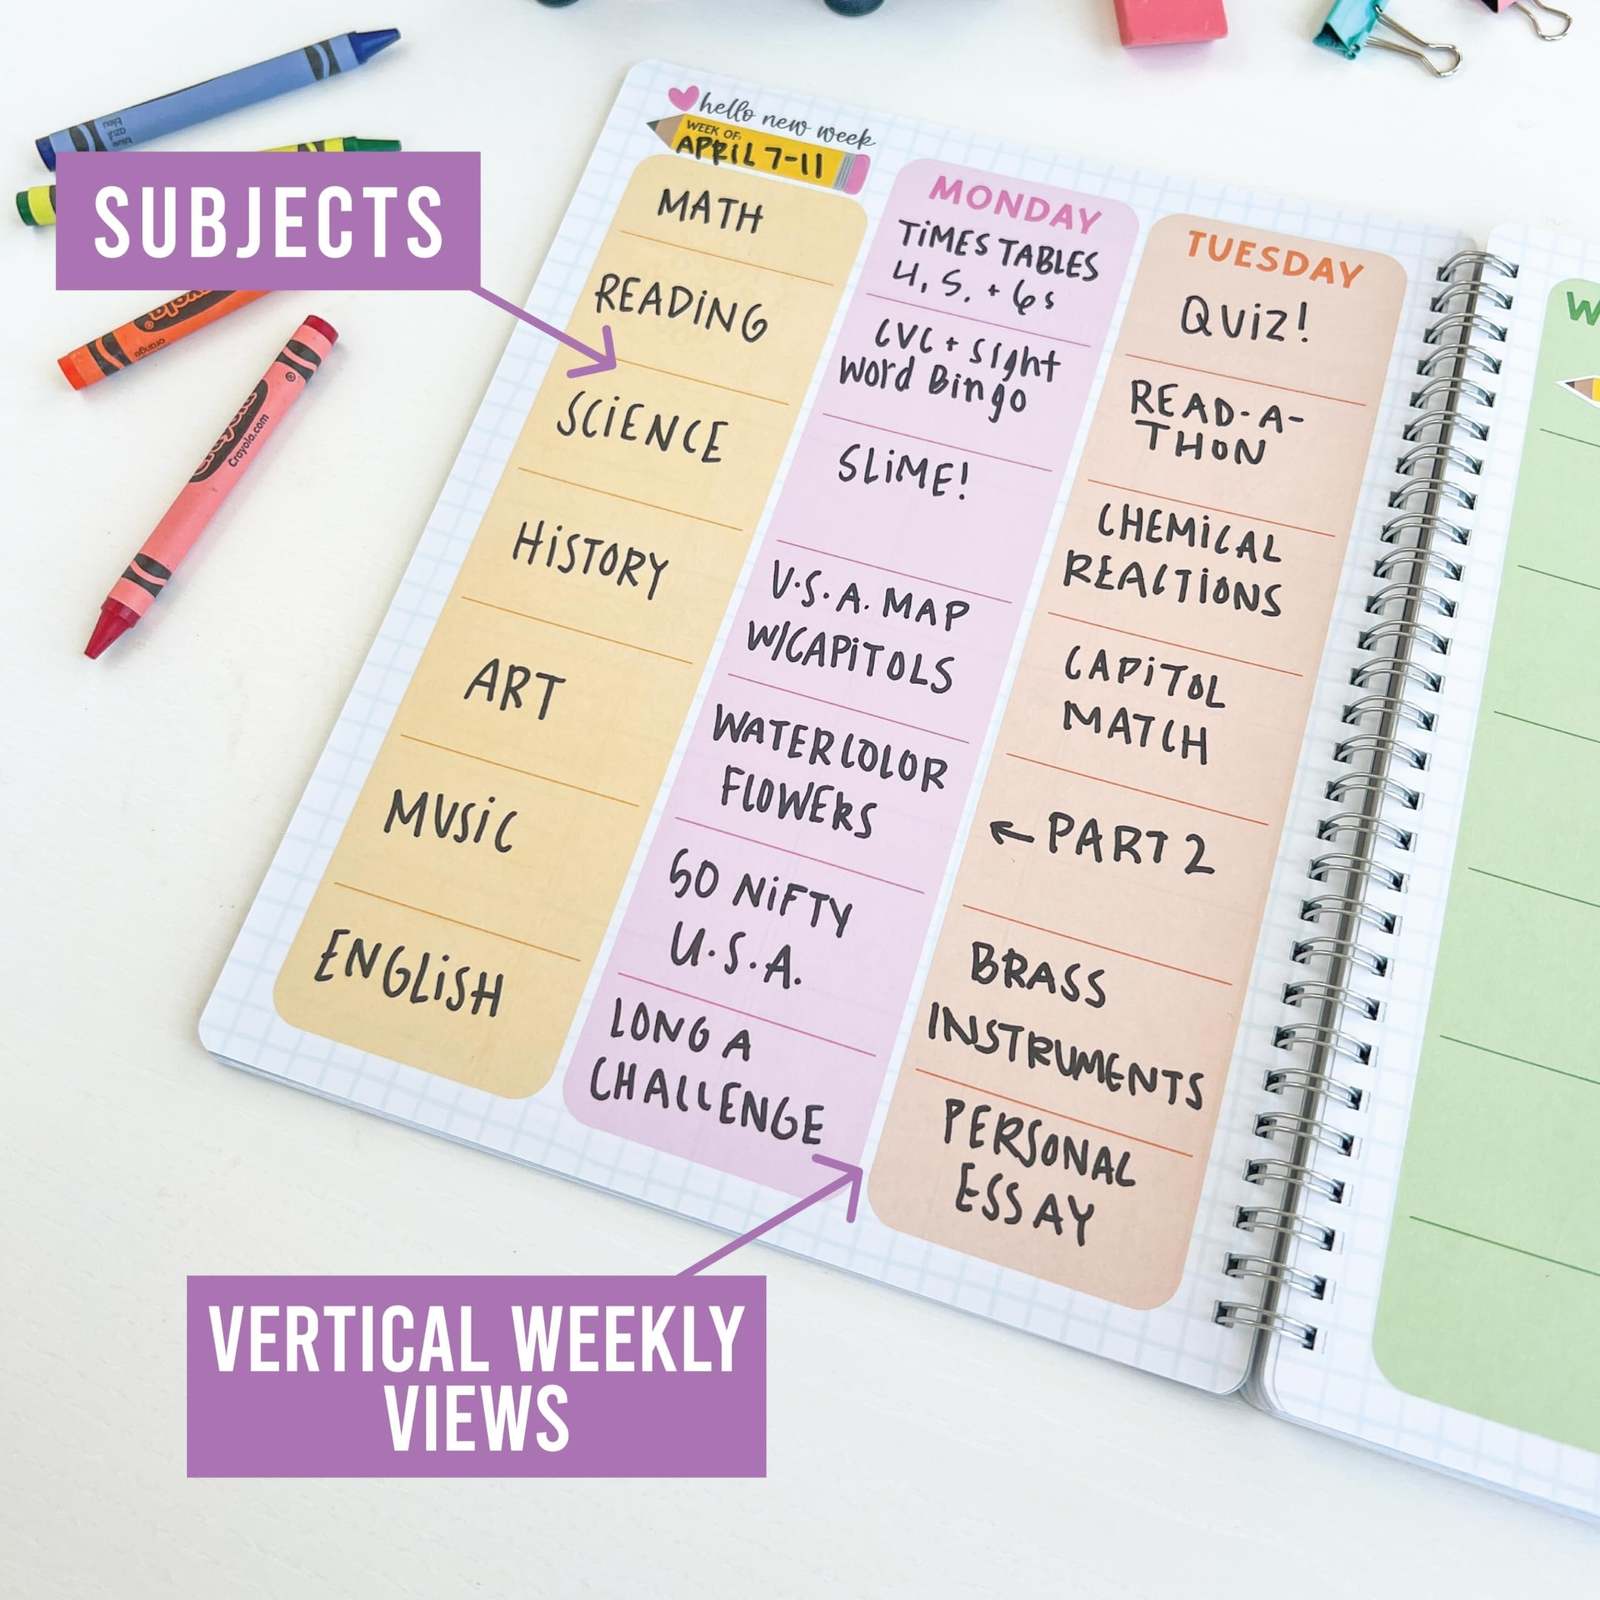 bleu
azul
blue
SUBJECTS
orange
Crayola
Crayola.com
hello new week
WEEK OF:
APRIL 7-11
MATH
READING
SCIENCE
HISTORY
ART
MUSIC
ENGLISH
MONDAY
TIMES TABLES
4, 5, + 6s
CVC + Sight
Word Bingo
SLIME!
U.S.A. MAP
W/CAPITOLS
WATERCOLOR
FLOWERS
50 NIFTY
U.S.A.
LONG A
CHALLENGE
TUESDAY
QUIZ!
READ-A-
THON
CHEMICAL
REACTIONS
CAPITOL
MATCH
← PART 2
BRASS
INSTRUMENTS
PERSONAL
ESSAY
W
VERTICAL WEEKLY
VIEWS